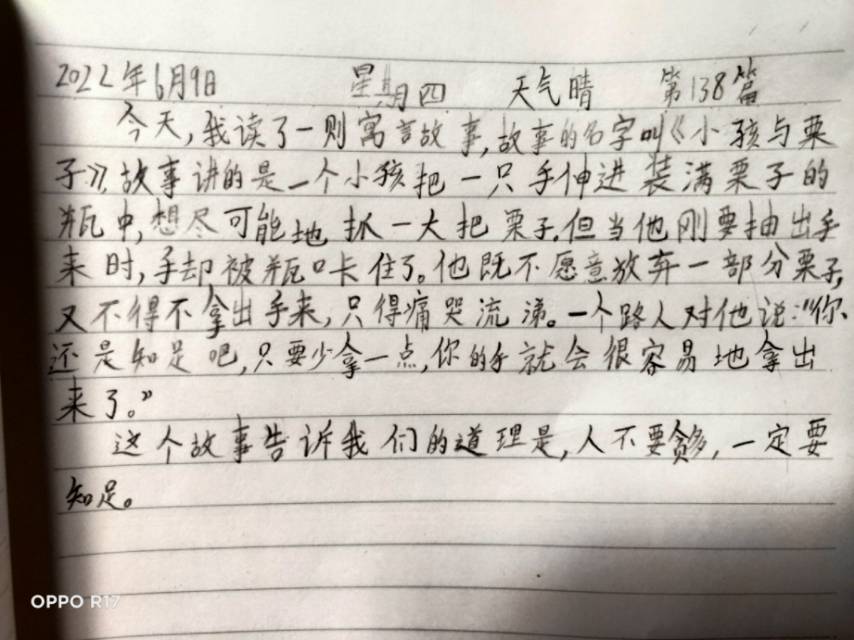 2022年6月9日 星期四 天气晴 第138篇
今天,我读了一则寓言故事,故事的名字叫《小孩与栗
子》,故事讲的是一个小孩把一只手伸进装满栗子的
瓶中,想尽可能地抓一大把栗子,但当他刚要抽出手
来时,手却被瓶口卡住了。他既不愿意放弃一部分栗子,
又不得不拿出手来,只得痛哭流涕。一个路人对他说:“你
还是知足吧,只要少拿一点,你的手就会很容易地拿出
来了。”
这个故事告诉我们的道理是,人不要贪多,一定要
知足。
OPPO R17